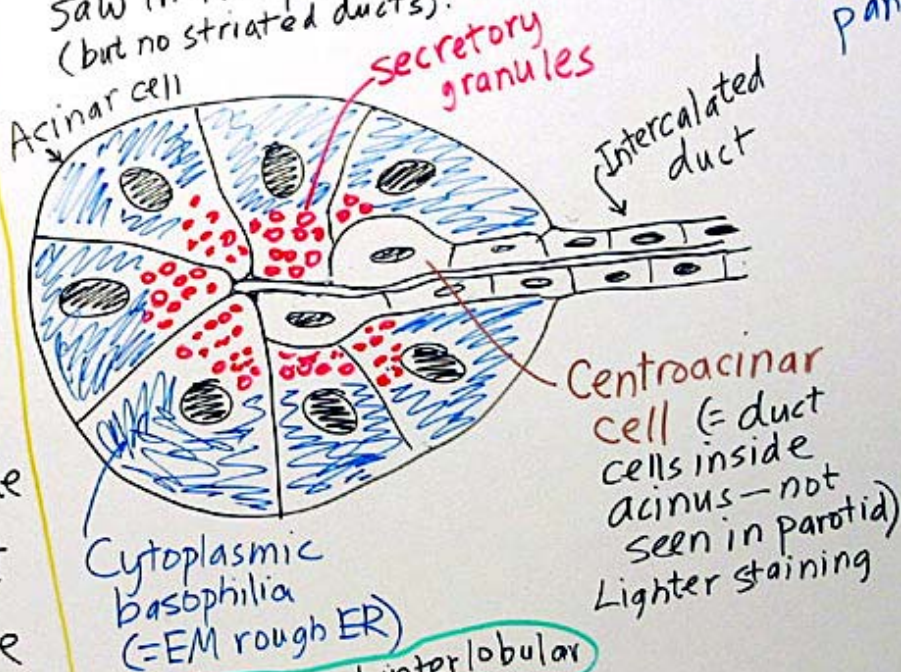 saw in
(but no striated ducts).
pan
Acinar cell
secretory
granules
Intercalated
duct
Centroacinar
cell (= duct
cells inside
acinus — not
seen in parotid)
Lighter staining
Cytoplasmic
basophilia
(=EM rough ER)
interlobular